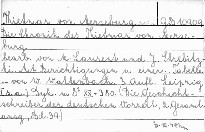 Thietmar von Merseburg
Die Chronik des Thietmar von Merse-
burg.
bearb. von M. Laurent und J. Strebitz-
ki. Mit Berichtigungen u. einer Tabelle
von W. Wattenbach. 3. Aufl. Leipzig
(Die Geschicht-
schreiber der deutschen Vorzeit, 2. Gesamt-
ausg., Bd. 39)